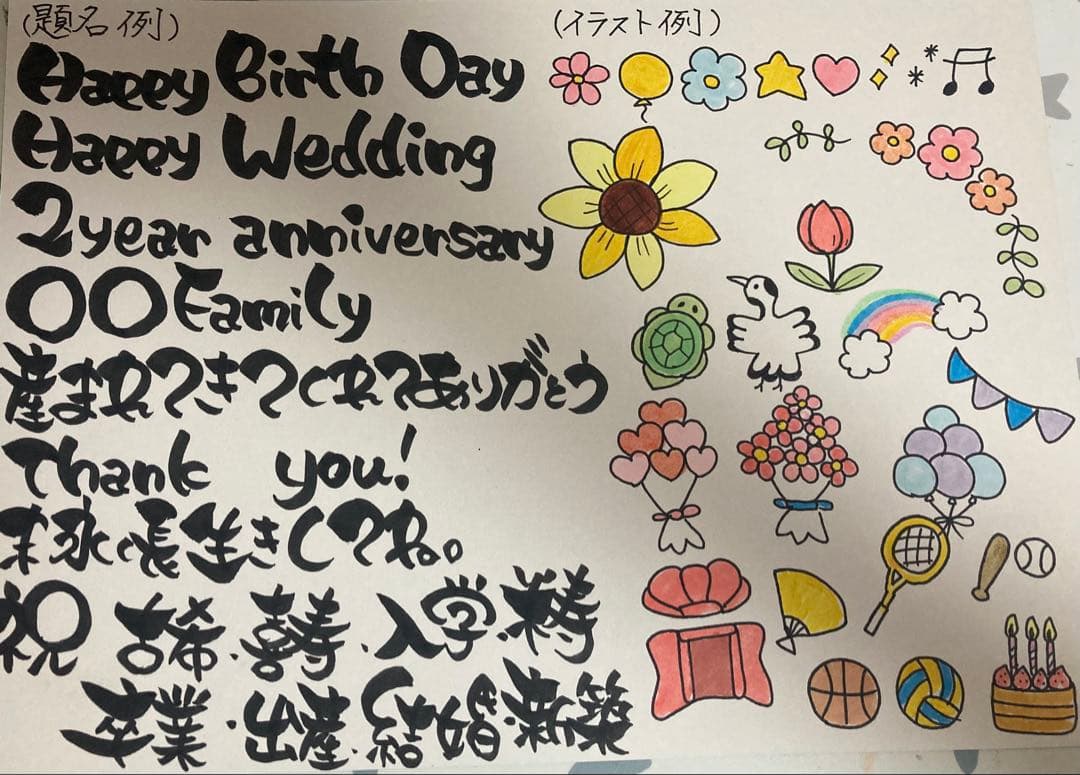 (題名例)
(イラスト例)
Happy Birth Day
Happy Wedding
2year anniversary
〇〇Family
産まれてきてくれてありがとう
Thank you!
末永く長生きしてね。
祝〇 古希・喜寿・入学・寿
卒業・出産・結婚・新築